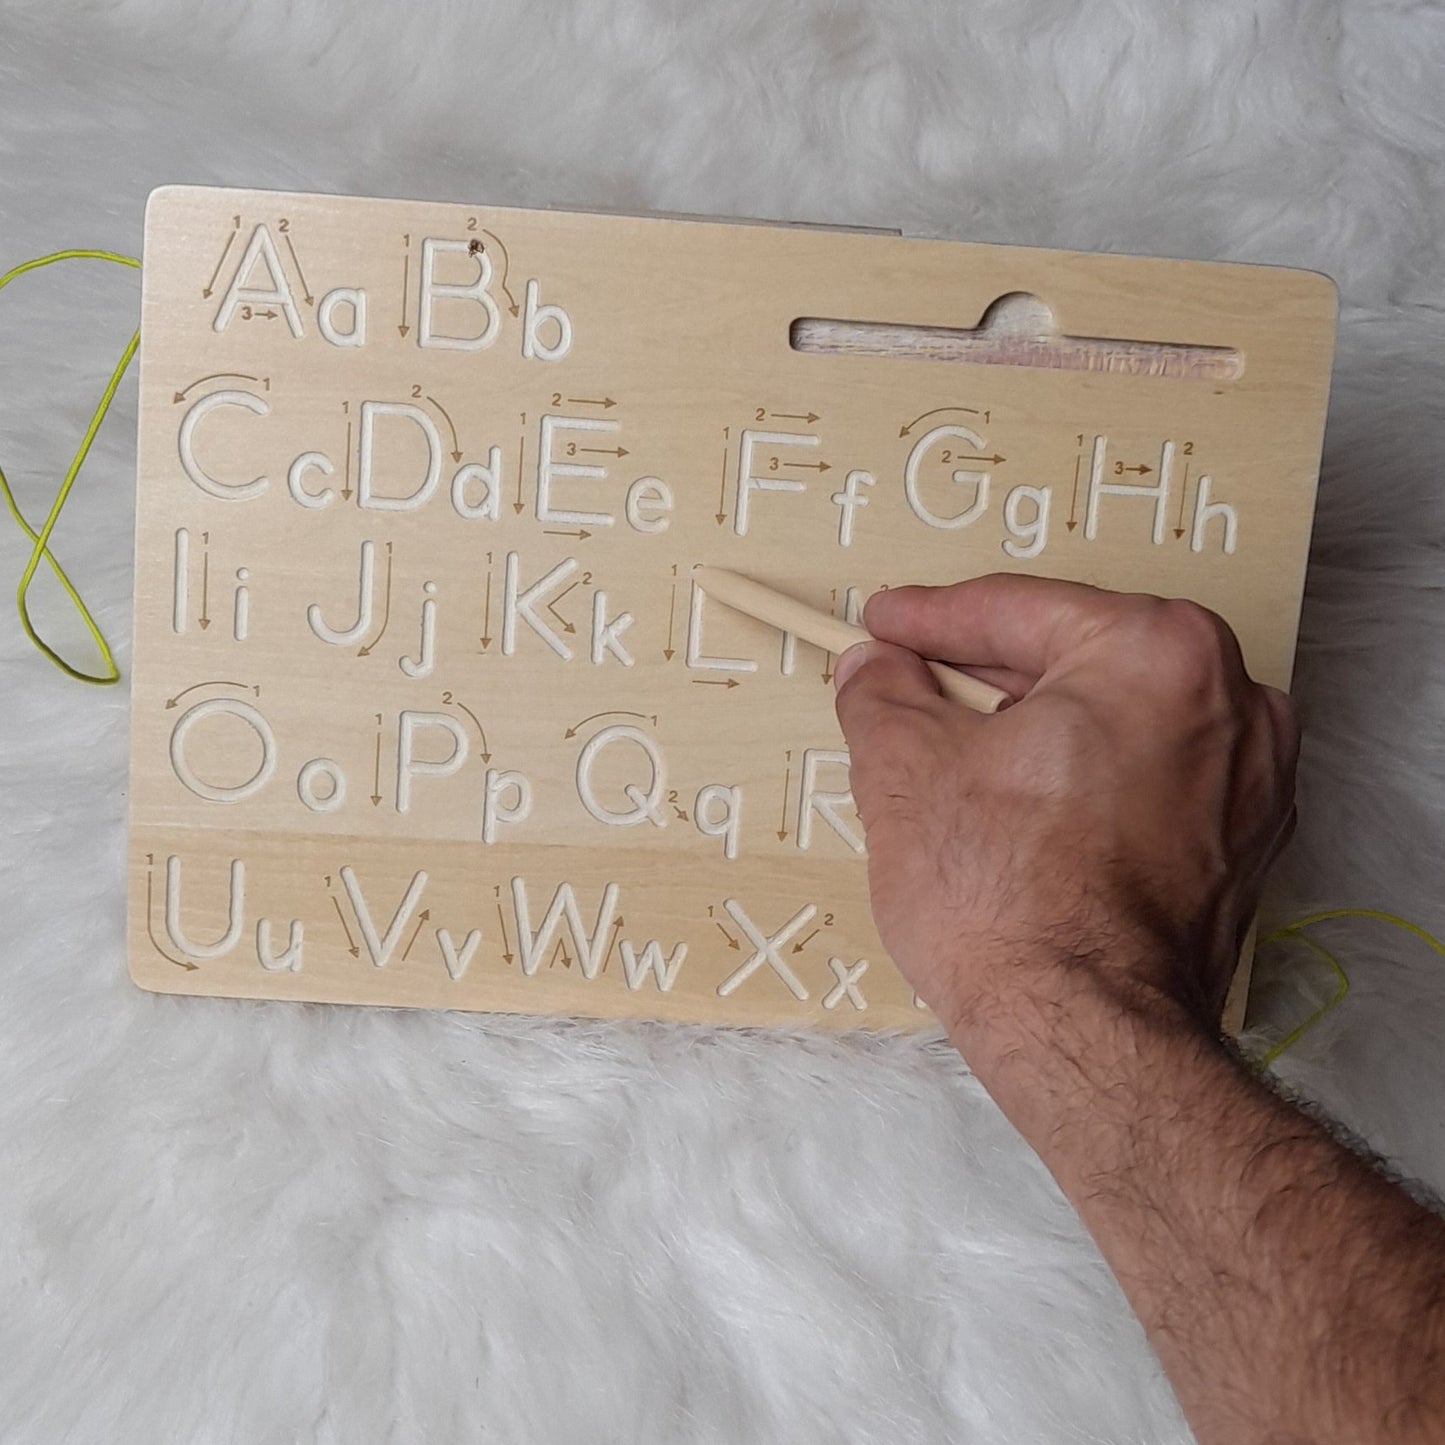 Aa Bb
Cc Dd Ee Ff Gg Hh
Ii Jj Kk Ll
Oo Pp Qq R
Uu Vv Ww Xx